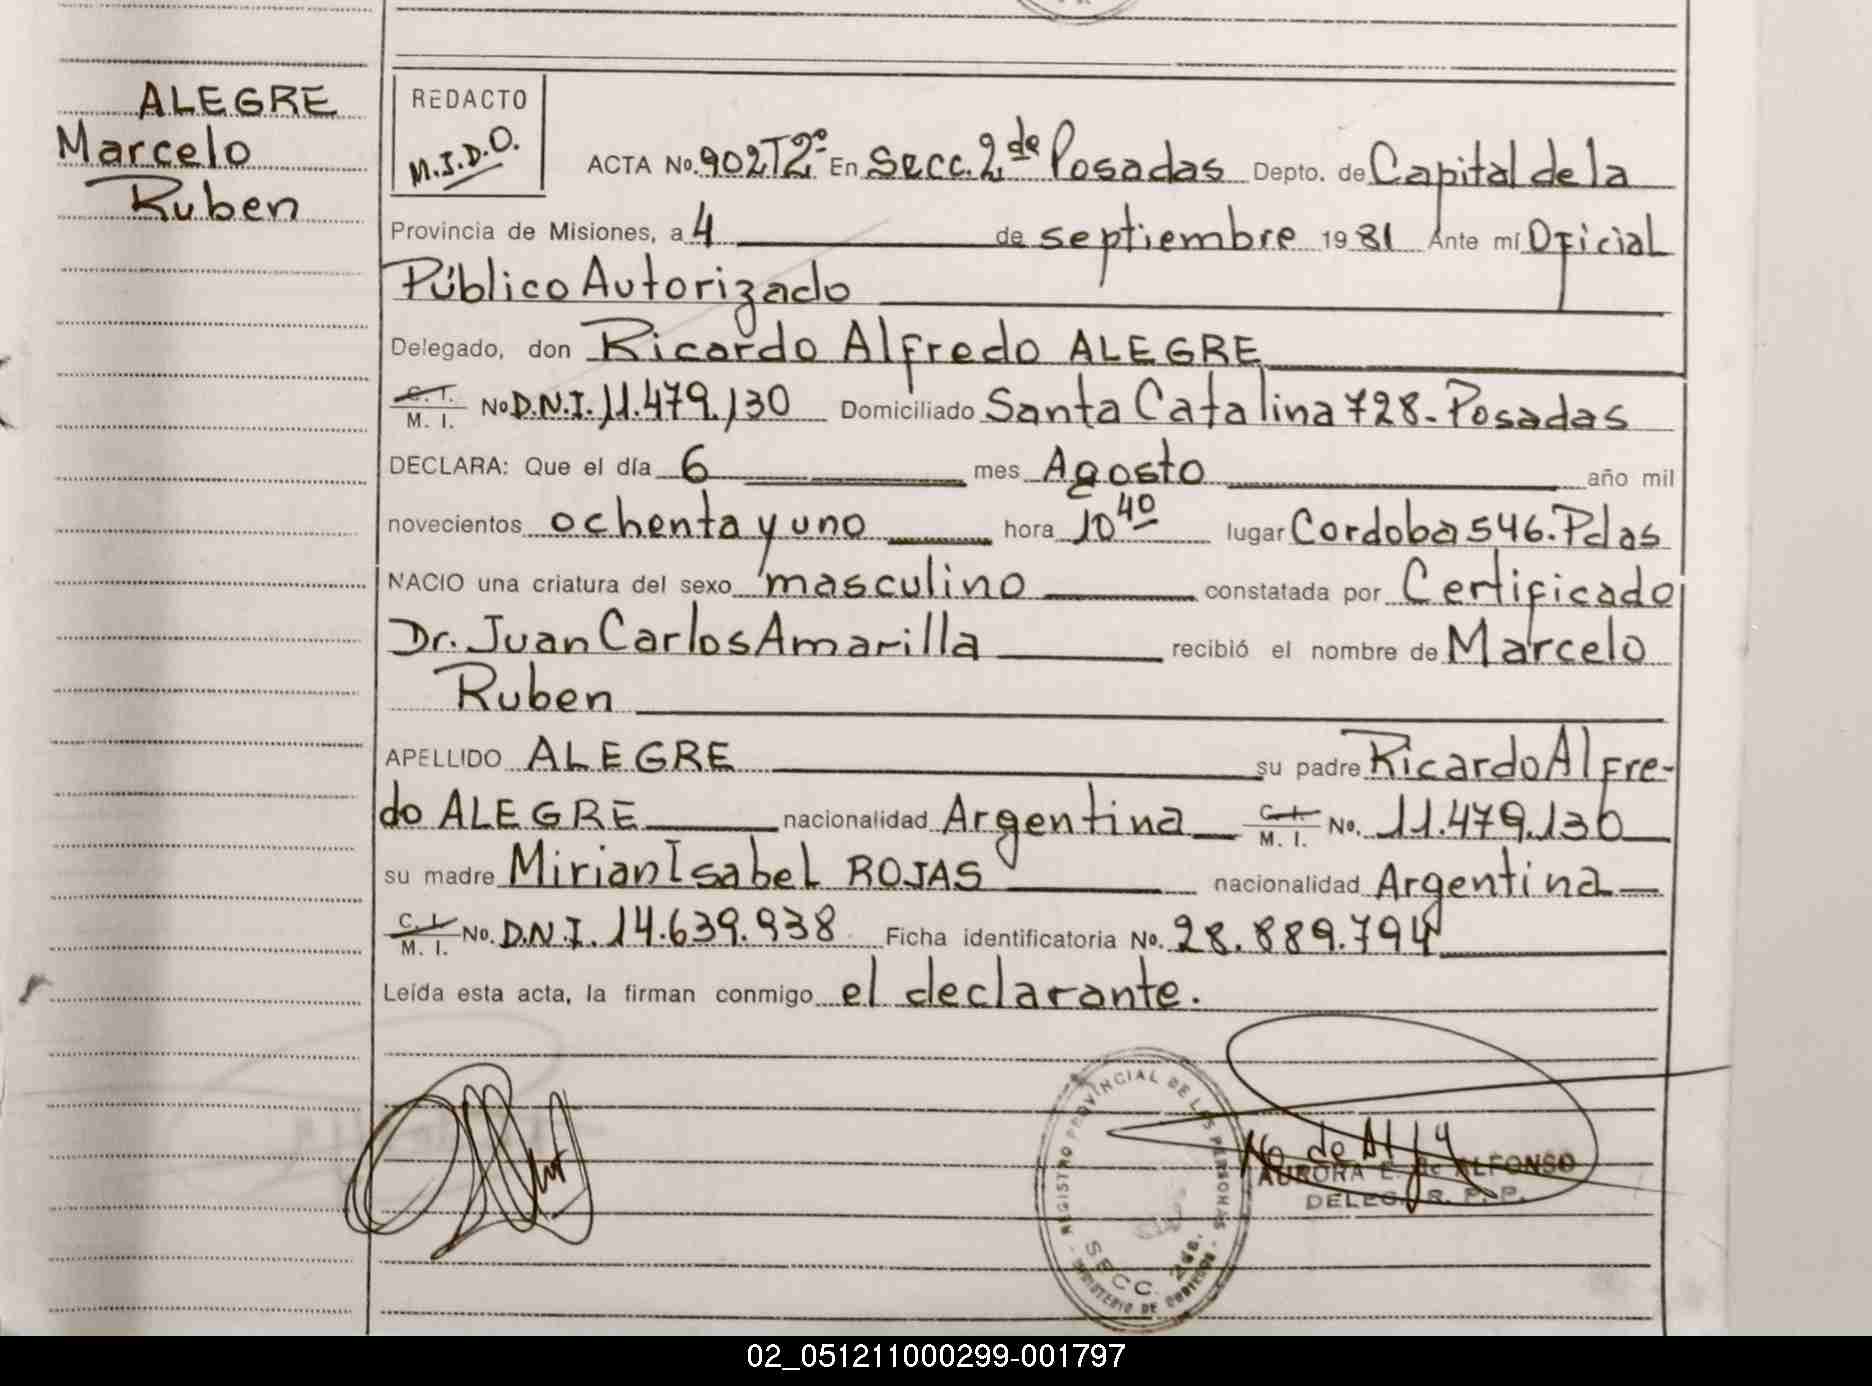 ALEGRE
Marcelo
Ruben
REDACTO
M.I.D.O.
ACTA No. 902 T2º En Secc. 2da Posadas Depto. de Capital de la
Provincia de Misiones, a 4 de septiembre 1981 Ante mí Oficial
Público Autorizado
Delegado, don Ricardo Alfredo ALEGRE
C. I.
M. I. No D.N.I. 11.479.130 Domiciliado Santa Catalina 728. Posadas
DECLARA: Que el día 6 mes Agosto año mil
novecientos ochenta y uno hora 10 40 lugar Cordoba 546. Pdas
NACIO una criatura del sexo masculino constatada por Certificado
Dr. Juan Carlos Amarilla recibió el nombre de Marcelo
Ruben
APELLIDO ALEGRE su padre Ricardo Alfre-
do ALEGRE nacionalidad Argentina C. I. M. I. No. 11.479.130
su madre Mirian Isabel ROJAS nacionalidad Argentina
C. I. M. I. No. D.N.I. 14.639.938 Ficha identificatoria No. 28.889.794
Leída esta acta, la firman conmigo el declarante.
REGISTRO PROVINCIAL DE LAS PERSONAS
SECC. 2da.
MINISTERIO DE GOBIERNO
AURORA E. de ALFONSO
DELEG. R. P. P.
02_051211000299-001797